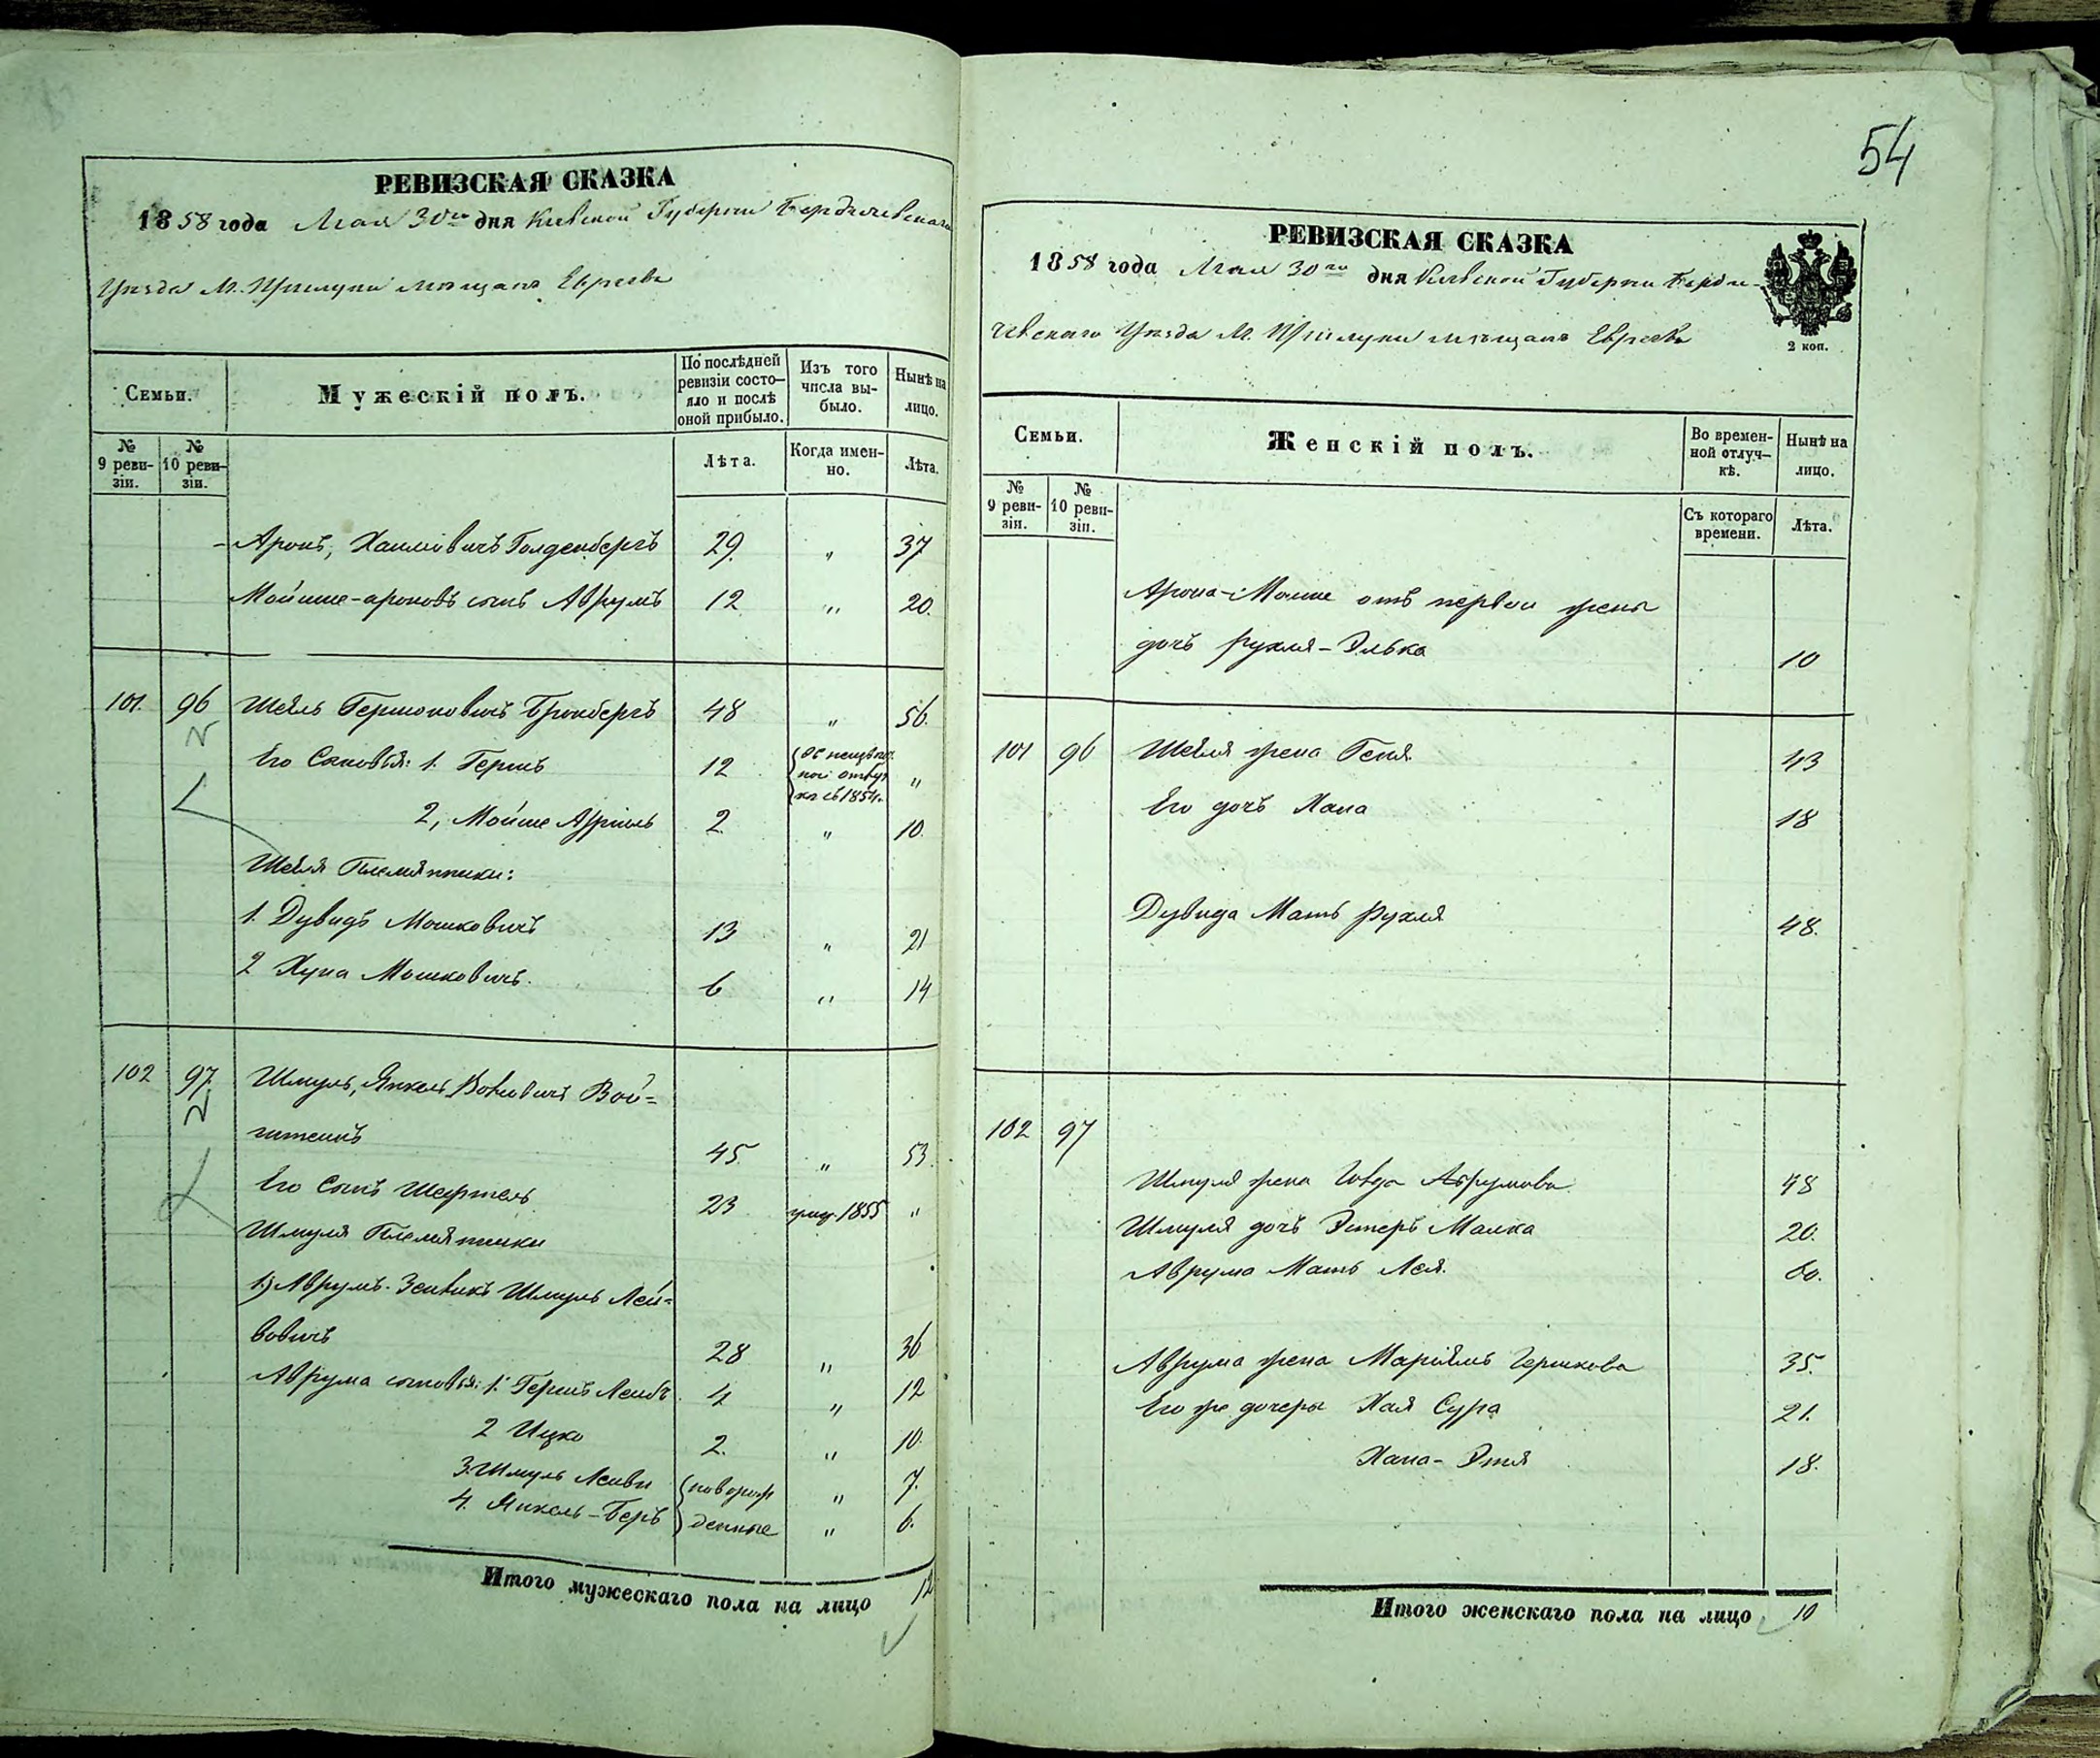 54
РЕВИЗСКАЯ СКАЗКА
1858 года Мая 30го дня Кіевской Губерніи Бердичевскаго
Уѣзда М. Прилуки мѣщанъ Евреевъ
Семьи.
Мужескій полъ.
По послѣдней ревизіи состояло и послѣ оной прибыло.
Изъ того числа выбыло.
Нынѣ на лицо.
№ 9 ревизіи.
№ 10 ревизіи.
Лѣта.
Когда именно.
Лѣта.
Аронъ, Хаимовичъ Голденбергъ 29. " 37
Мойше-ароновъ сынъ Аврумъ 12 " 20.
101. 96 Шеяль Гершоковичъ Бронбергъ 48 " 56.
Его Сыновья: 1. Гершъ 12 въ неизвѣстной отлучкѣ съ 1854. "
2, Мойше 2. " 10.
Шеяля Племянники:
1. Дувидъ Мошковичъ 13 " 21
2 Хуна Мошковичъ. 6 " 14
102 97. Шмуль, Янкель Вой=
45. " 53.
Его Сынъ 23 умер. 1855 "
Шмуля Племянники
1.) Аврумъ. Зейвикъ Шмуль Лей=
бовичъ 28 " 36
Аврума сыновья: 1. Гершъ Лейбъ. 4 " 12
2 Ицко 2. " 10.
3. Шмуль Лейви новорож " 7.
4. Янкель-Беръ денные " 6.
Итого мужескаго пола на лицо 12
РЕВИЗСКАЯ СКАЗКА
1858 года Мая 30го дня Кіевской Губерніи Берди-
чевскаго Уѣзда М. Прилуки мѣщанъ Евреевъ
2 коп.
Семьи.
Женскій полъ.
Во временной отлучкѣ.
Нынѣ на лицо.
№ 9 ревизіи.
№ 10 ревизіи.
Съ котораго времени.
Лѣта.
Арона-Мойше отъ первой жены
дочь Рухля-Элька 10
101 96 Шеяля жена Геня. 43
Его дочь Хана 18
Дувида Мать Рухля 48.
102 97
Шмуля жена Аврумова 48
Шмуля дочь Эстеръ Малка 20.
Аврума Мать Лея. 60.
Аврума жена Маріямъ Гершкова 35.
Его же дочери Хая Сура 21.
Хана-Этя 18.
Итого женскаго пола на лицо 10